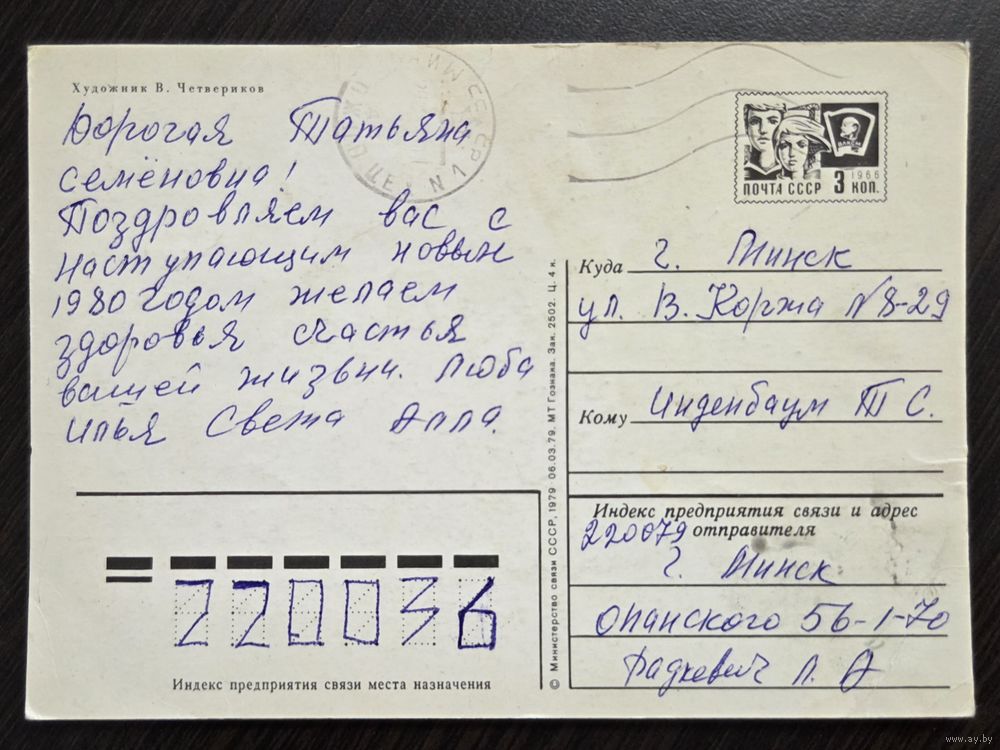 Художник В. Четвериков
Дорогая Татьяна
семёновна!
Поздровляем вас с
наступающим новым
1980 годом желаем
здоровья счастья
вашей жизьни. Люба
илья Света Алла.
ПОЧТА СССР 3 КОП.
1966
ВЛКСМ
N 1
Куда г. Минск
ул. В. Коржа №8-29
Кому Инденбаум Т С.
Индекс предприятия связи и адрес
220079 отправителя
г. Минск
опанского 56-1-70
Радкевич Л. А
220036
Индекс предприятия связи места назначения
© Министерство связи СССР, 1979 06.03.79. МТ Гознака. Зак. 2502. Ц. 4 к.
www.ay.by